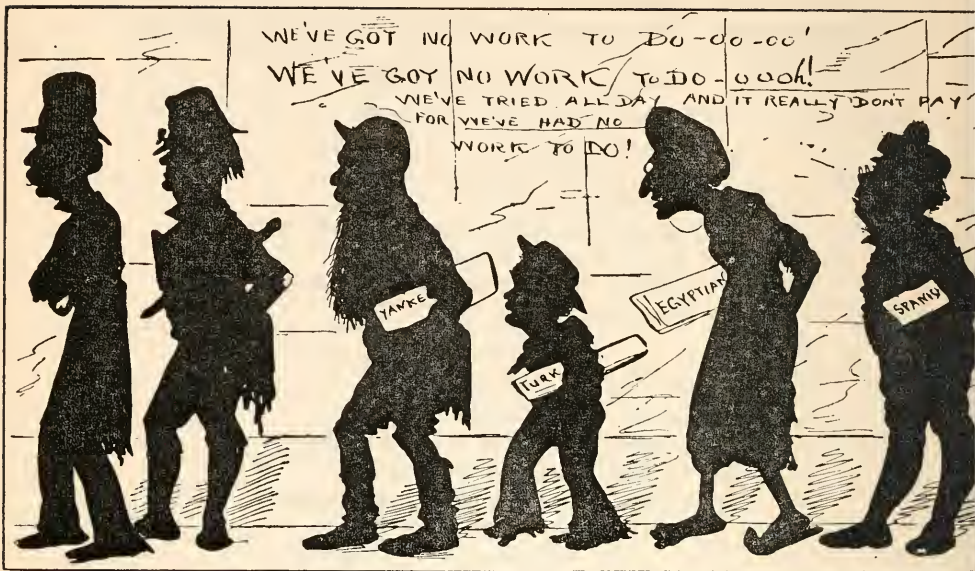 WE'VE GOT NO WORK TO DO-OO-OO'!
WE'VE GOT NO WORK TO DO-OUOh!
WE'VE TRIED ALL DAY AND IT REALLY DON'T PAY
FOR WE'VE HAD NO
WORK TO DO!
YANKE
TURK
EGYPTIAN
SPANISH